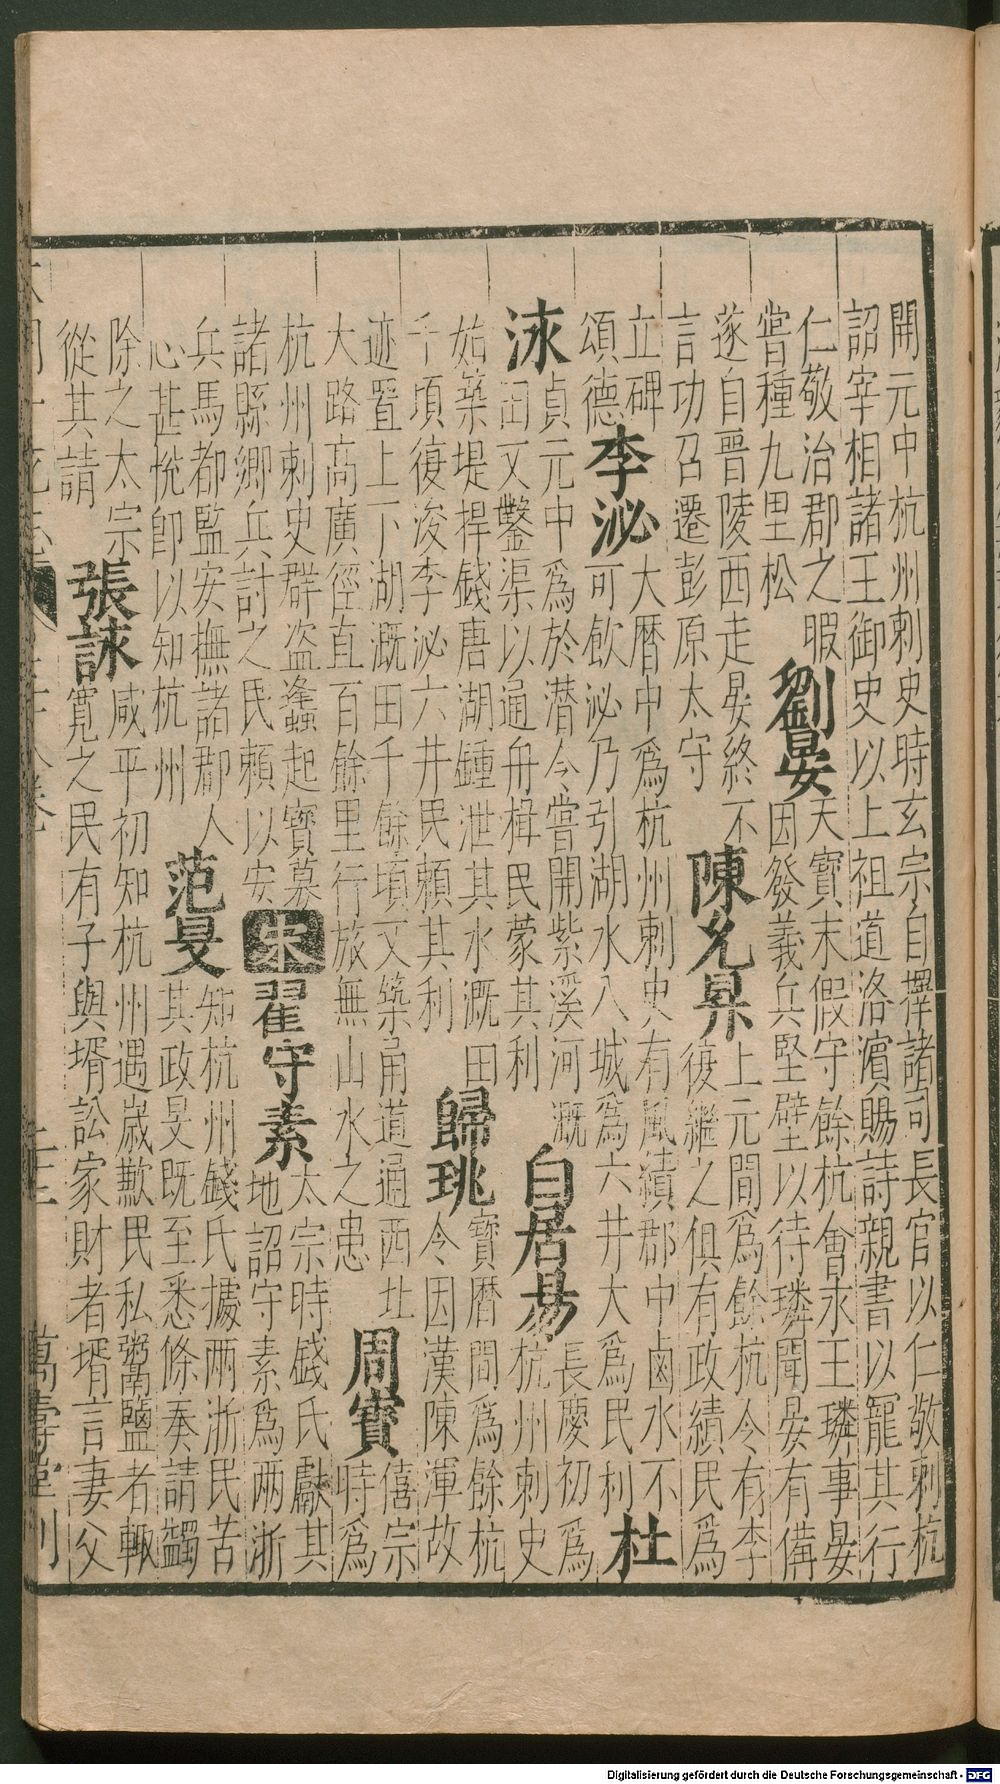 開元中杭州刺史時玄宗自擇諸司長官以仁敬刺杭
詔宰相諸王御史以上祖道洛濱賜詩親書以寵其行
仁敬治郡之暇
嘗種九里松
劉晏
天寶末假守餘杭會永王璘事晏
因發義兵堅壁以待璘聞晏有備
遂自晉陵西走晏終不
言功召遷彭原太守
陳允昇
上元間爲餘杭令有李
後繼之俱有政績民爲
立碑
頌德
李泌
大曆中爲杭州刺史有風績郡中鹵水不
可飲泌乃引湖水入城爲六井大爲民利
杜
泳
貞元中爲於潛令嘗開紫溪河溉
田又鑿渠以通舟楫民蒙其利
白居易
長慶初爲
杭州刺史
始築堤捍錢唐湖鍾泄其水溉田
千頃復浚李泌六井民頼其利
歸珧
寶曆間爲餘杭
令因漢陳渾故
迹置上下湖溉田千餘頃又築甬道通西北
大路高廣徑直百餘里行旅無山水之患
周寶
僖宗
時爲
杭州刺史群盗蠭起寶募
諸縣鄉兵討之民頼以安
宋
翟守素
太宗時錢氏獻其
地詔守素爲两浙
兵馬都監安撫諸郡人
心甚恱卽以知杭州
范旻
知杭州錢氏據两浙民苦
其政旻既至悉條奏請蠲
除之太宗
從其請
張詠
咸平初知杭州遇歲歉民私鬻鹽者輙
寬之民有子與壻訟家財者壻言妻父
萬壽堂刊
Digitalisierung gefördert durch die Deutsche Forschungsgemeinschaft - DFG